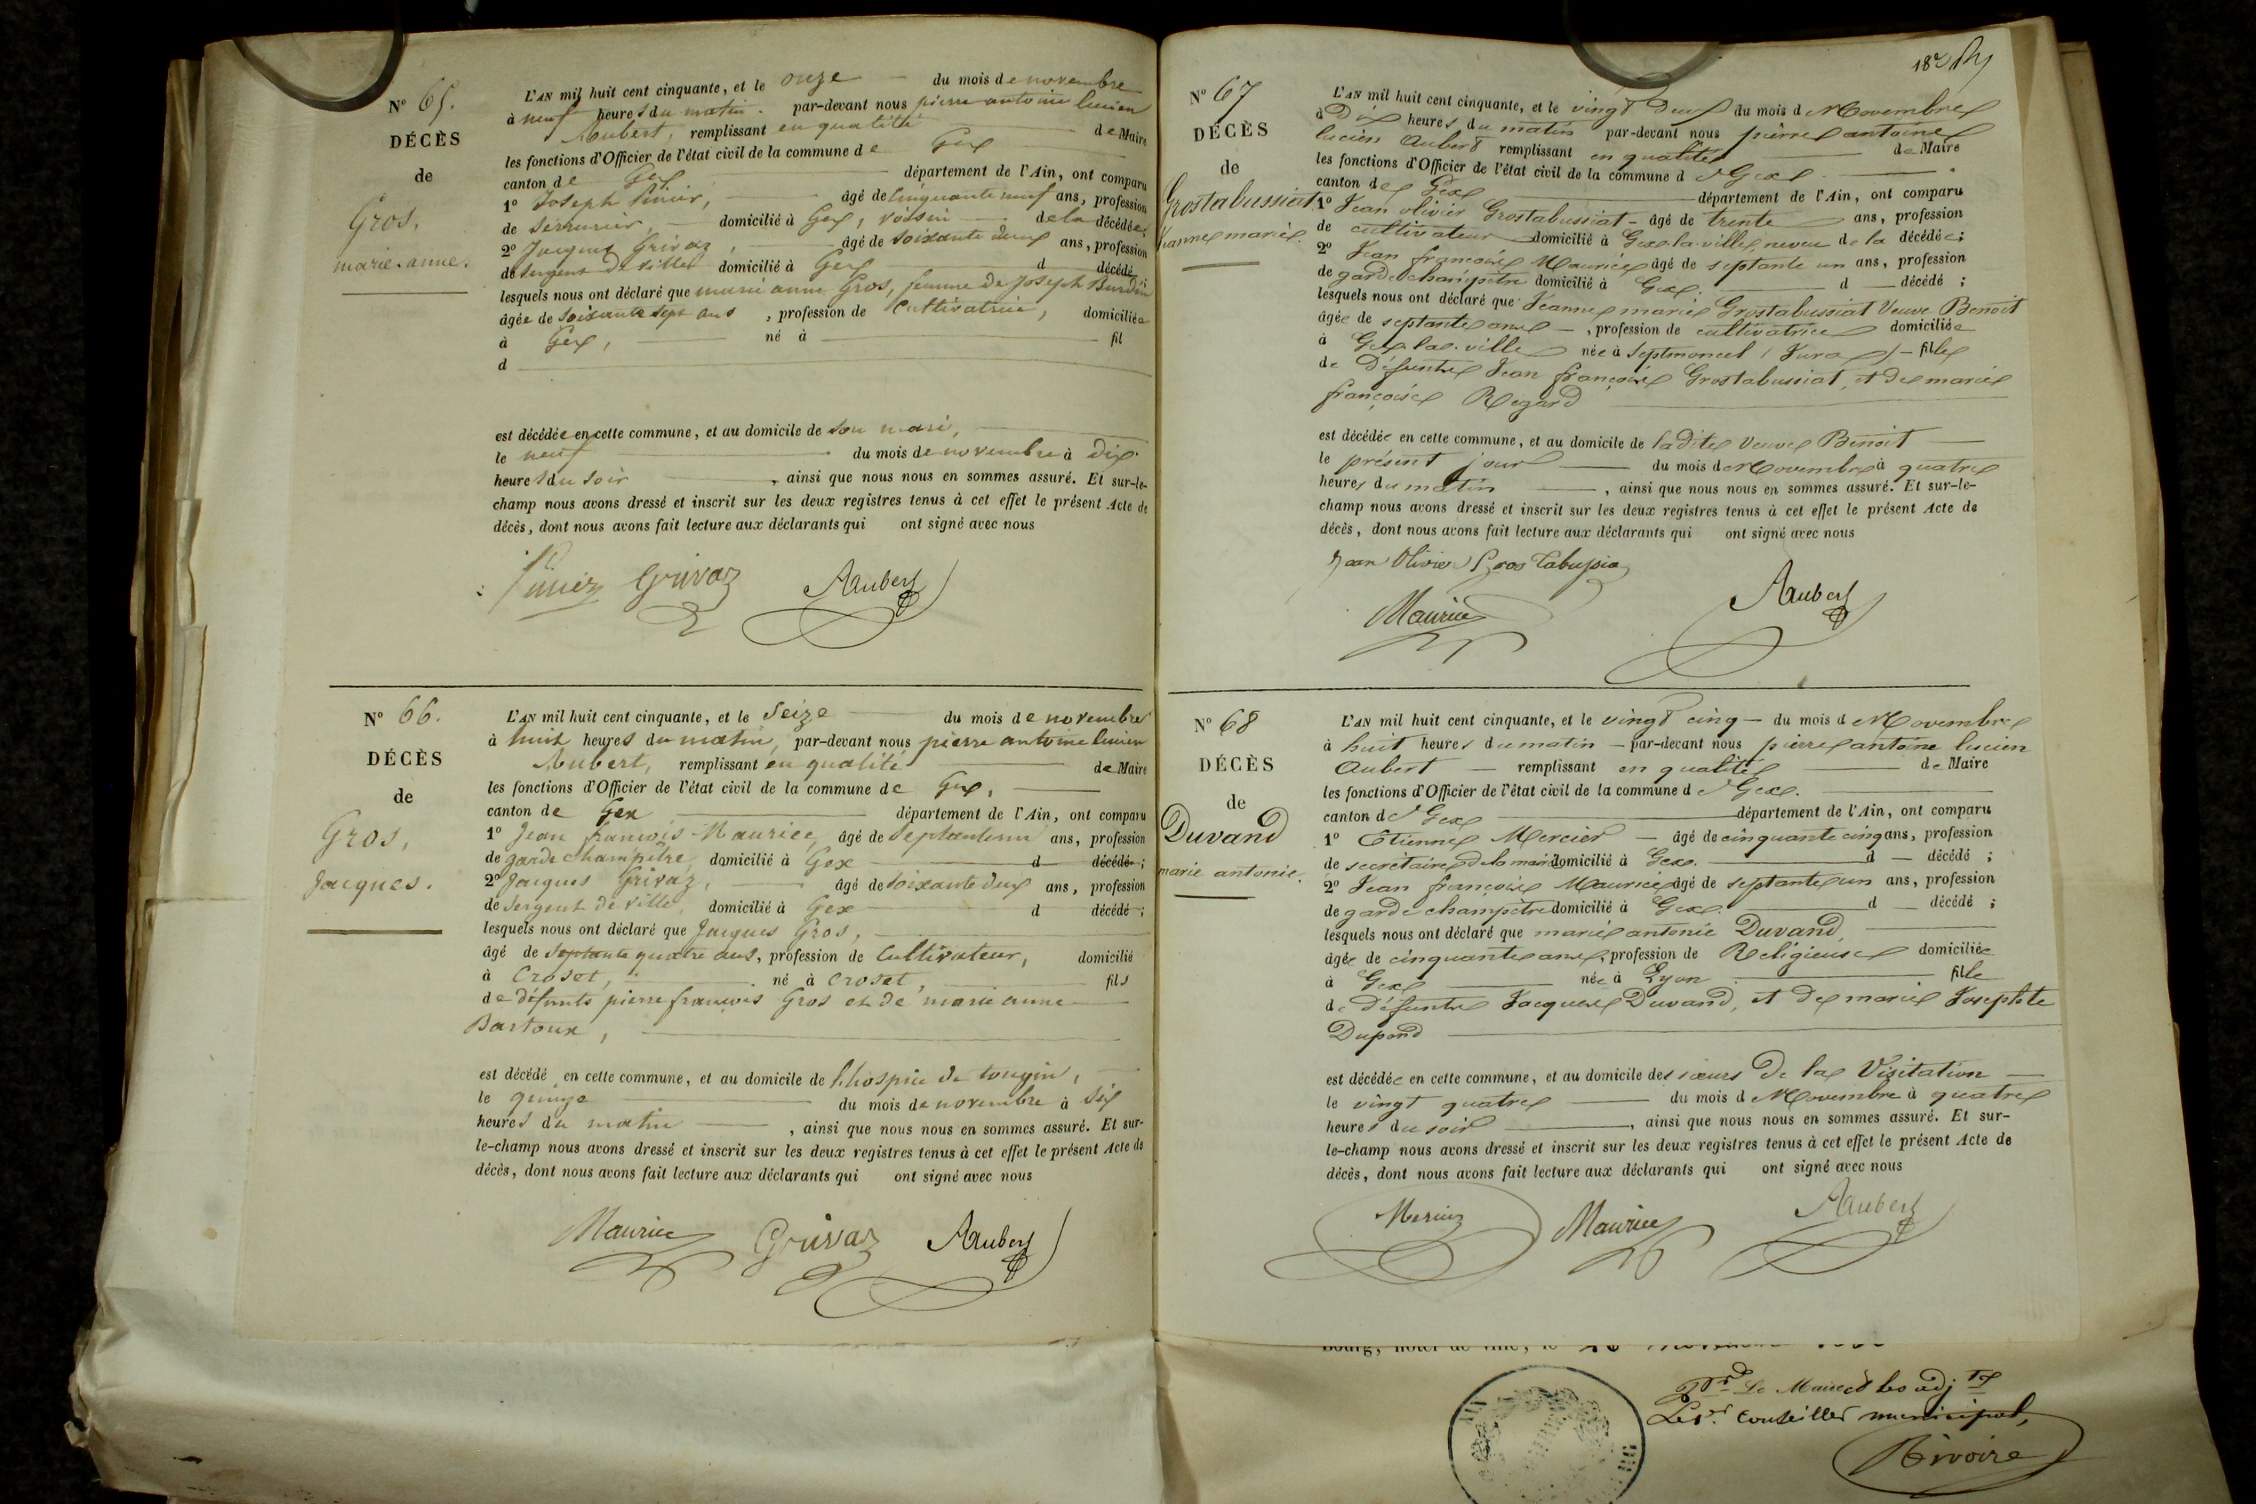 N° 65.
DÉCÈS
de
Gros,
marie-anne.
L'AN mil huit cent cinquante, et le onze du mois de novembre
à neuf heures du matin. par-devant nous pierre antoine lucien
Aubert, remplissant en qualité de Maire
les fonctions d'Officier de l'état civil de la commune de Gex
canton de Gex département de l'Ain, ont comparu
1° Joseph âgé de cinquante neuf ans, profession
de Serrurier, domicilié à Gex, voisin de la décédée;
2° Jacques Grivaz, âgé de soixante deux ans, profession
de sergent de ville domicilié à Gex d décédé
lesquels nous ont déclaré que marie anne Gros, femme de Joseph Burdin
âgée de soixante sept ans, profession de Cultivatrice, domiciliée
à Gex, né à fil
d
est décédée en cette commune, et au domicile de son mari,
le neuf du mois de novembre à dix
heures du soir, ainsi que nous nous en sommes assuré. Et sur-le-
champ nous avons dressé et inscrit sur les deux registres tenus à cet effet le présent Acte de
décès, dont nous avons fait lecture aux déclarants qui ont signé avec nous
Grivaz Aubert
N° 66.
DÉCÈS
de
Gros,
Jacques.
L'AN mil huit cent cinquante, et le Seize du mois de novembre
à huit heures du matin, par-devant nous pierre antoine lucien
Aubert, remplissant en qualité de Maire
les fonctions d'Officier de l'état civil de la commune de Gex,
canton de Gex département de l'Ain, ont comparu
1° Jean françois Maurice, âgé de septante un ans, profession
de garde champêtre, domicilié à Gex d décédé;
2° Jacques Grivaz, âgé de soixante deux ans, profession
de Sergent de ville, domicilié à Gex d décédé;
lesquels nous ont déclaré que Jacques Gros,
âgé de septante quatre ans, profession de Cultivateur, domicilié
à Croset, né à Croset, fils
de défunts pierre françois Gros et de marie anne
Bartoux,
est décédé en cette commune, et au domicile de l'hospice de tougin,
le quinze du mois de novembre à six
heures du matin, ainsi que nous nous en sommes assuré. Et sur-
le-champ nous avons dressé et inscrit sur les deux registres tenus à cet effet le présent Acte de
décès, dont nous avons fait lecture aux déclarants qui ont signé avec nous
Maurice Grivaz Aubert
N° 67
DÉCÈS
de
Grostabussiat
Jeanne marie.
L'AN mil huit cent cinquante, et le vingt deux du mois d Novembre
à Dix heures du matin par-devant nous pierre antoine
lucien Aubert remplissant en qualité de Maire
les fonctions d'Officier de l'état civil de la commune d e Gex.
canton de Gex département de l'Ain, ont comparu
1° Jean olivier Grostabussiat - âgé de trente ans, profession
de cultivateur domicilié à Gex-la-ville, neveu de la décédée;
2° Jean françois Maurice âgé de septante un ans, profession
de garde champêtre domicilié à Gex. d décédé;
lesquels nous ont déclaré que Jeanne marie Grostabussiat Veuve Benoit
âgée de septante ans -, profession de cultivatrice domiciliée
à Gex la ville née à Septmoncel (Jura) - fille
de Défunts Jean françois Grostabussiat, et de marie
françoise Regard
est décédée en cette commune, et au domicile de ladite veuve Benoit
le présent jour du mois d Novembre à quatre
heures du matin, ainsi que nous nous en sommes assuré. Et sur-le-
champ nous avons dressé et inscrit sur les deux registres tenus à cet effet le présent Acte de
décès, dont nous avons fait lecture aux déclarants qui ont signé avec nous
Jean Olivier Gros tabussia
Maurice Aubert
N° 68
DÉCÈS
de
Duvand
marie antonie.
L'AN mil huit cent cinquante, et le vingt cinq - du mois d Novembre
à huit heures du matin - par-devant nous pierre antoine lucien
Aubert remplissant en qualité de Maire
les fonctions d'Officier de l'état civil de la commune d e Gex.
canton d e Gex département de l'Ain, ont comparu
1° Etienne Mercier - âgé de cinquante cinq ans, profession
de secrétaire de la mairie domicilié à Gex. d - décédé;
2° Jean françois Maurice âgé de septante un ans, profession
de garde champêtre domicilié à Gex. d - décédé;
lesquels nous ont déclaré que marie antonie Duvand,
âgée de cinquante ans, profession de Religieuse domiciliée
à Gex née à Lyon fille
de défunts Jacques Duvand, et de marie Josephte
Dupond
est décédée en cette commune, et au domicile des sœurs De la Visitation
le vingt quatre du mois d Novembre à quatre
heures du soir, ainsi que nous nous en sommes assuré. Et sur-
le-champ nous avons dressé et inscrit sur les deux registres tenus à cet effet le présent Acte de
décès, dont nous avons fait lecture aux déclarants qui ont signé avec nous
Mercier Maurice Aubert
Le Maire
conseiller municipal,
Rivoire